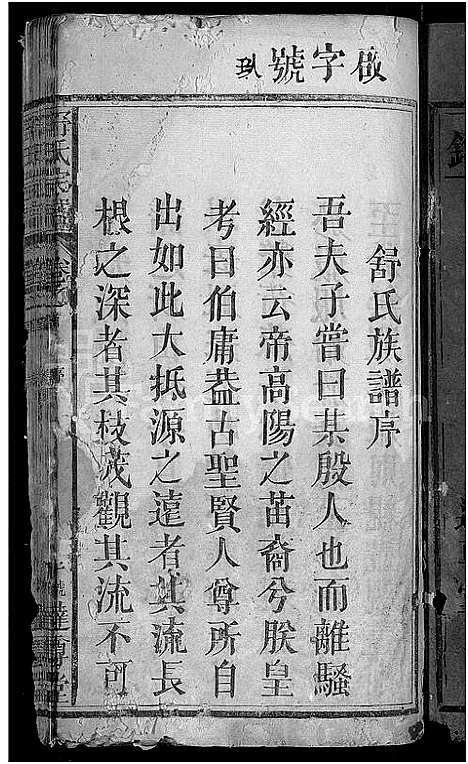 啟字號 玖
舒氏族譜序
吾夫子嘗曰某殷人也而離騷
經亦云帝高陽之苗裔兮朕皇
考曰伯庸葢古聖賢人尊所自
出如此大抵源之遠者其流長
根之深者其枝茂觀其流不可
舒氏宗譜